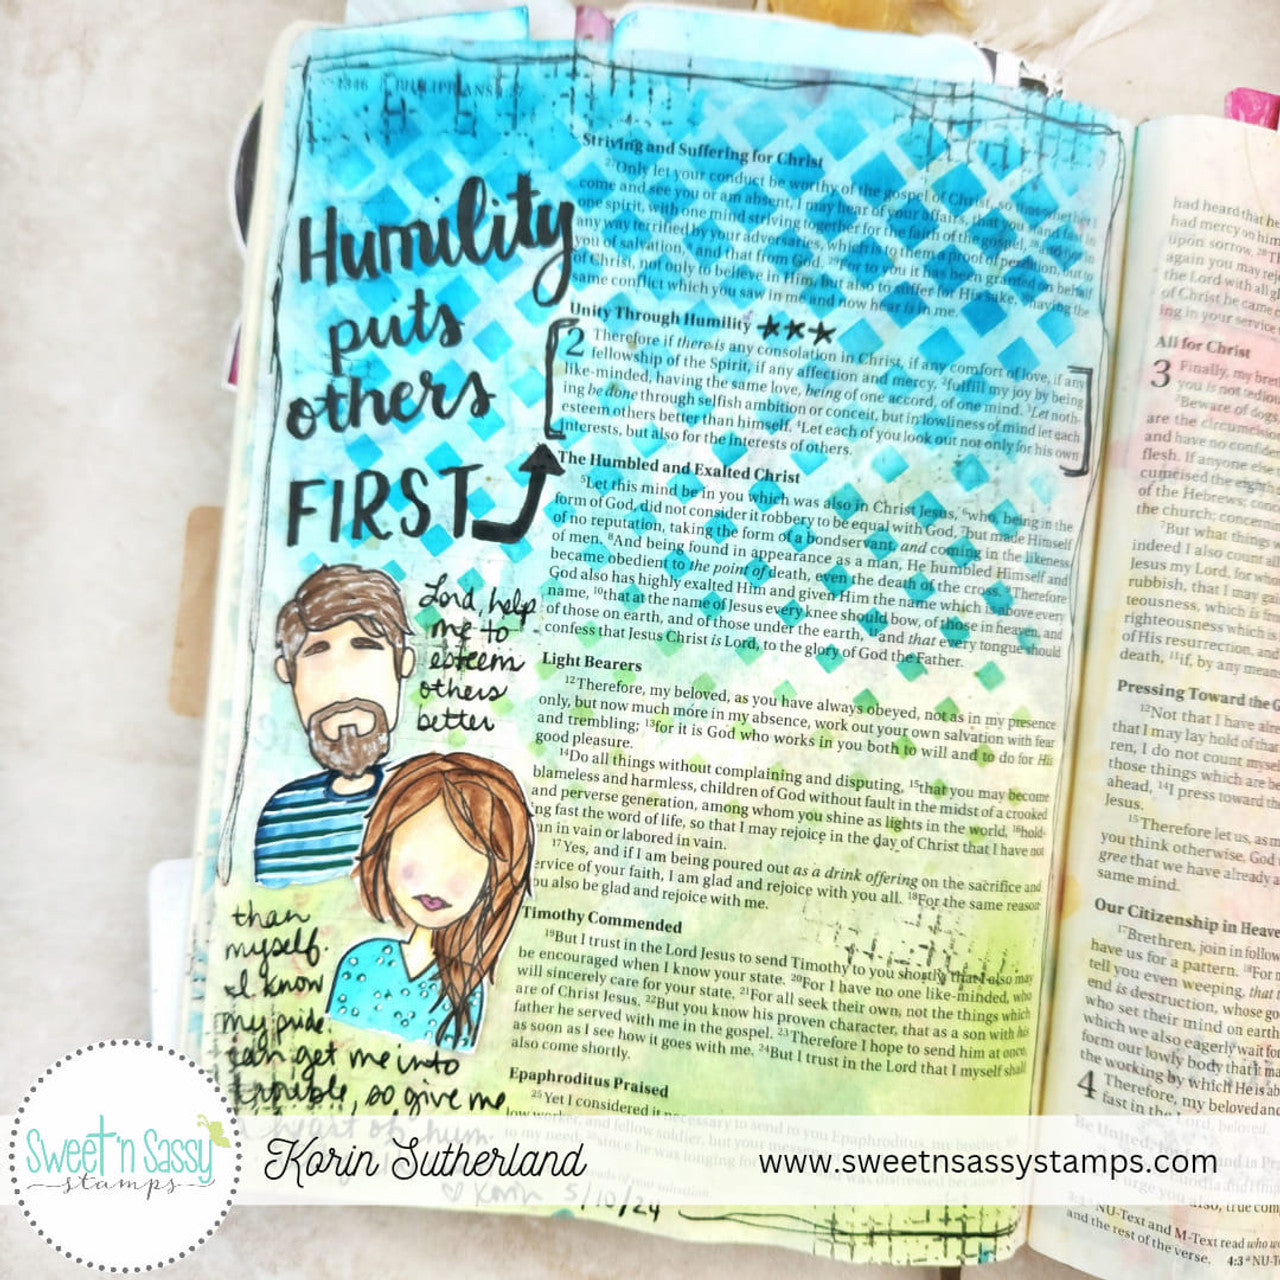 1346 PHILIPPIANS
Humility
puts
others
FIRST
Lord, help
me to
esteem
others
better
than
myself.
I know
my pride
can get me into
trouble, so give me
a heart of hum
♡ Korin 5/10/24
Striving and Suffering for Christ
27Only let your conduct be worthy of the gospel of Christ, so that whether I
come and see you or am absent, I may hear of your affairs, that you stand fast in
one spirit, with one mind striving together for the faith of the gospel, 28and not in
any way terrified by your adversaries, which is to them a proof of perdition, but to
you of salvation, and that from God. 29For to you it has been granted on behalf
of Christ, not only to believe in Him, but also to suffer for His sake, 30having the
same conflict which you saw in me and now hear is in me.
Unity Through Humility ★★★
2 Therefore if there is any consolation in Christ, if any comfort of love, if any
fellowship of the Spirit, if any affection and mercy, 2fulfill my joy by being
like-minded, having the same love, being of one accord, of one mind. 3Let noth-
ing be done through selfish ambition or conceit, but in lowliness of mind let each
esteem others better than himself. 4Let each of you look out not only for his own
interests, but also for the interests of others.
The Humbled and Exalted Christ
5Let this mind be in you which was also in Christ Jesus, 6who, being in the
form of God, did not consider it robbery to be equal with God, 7but made Himself
of no reputation, taking the form of a bondservant, and coming in the likeness
of men. 8And being found in appearance as a man, He humbled Himself and
became obedient to the point of death, even the death of the cross. 9Therefore
God also has highly exalted Him and given Him the name which is above every
name, 10that at the name of Jesus every knee should bow, of those in heaven, and
of those on earth, and of those under the earth, 11and that every tongue should
confess that Jesus Christ is Lord, to the glory of God the Father.
Light Bearers
12Therefore, my beloved, as you have always obeyed, not as in my presence
only, but now much more in my absence, work out your own salvation with fear
and trembling; 13for it is God who works in you both to will and to do for His
good pleasure.
14Do all things without complaining and disputing, 15that you may become
blameless and harmless, children of God without fault in the midst of a crooked
and perverse generation, among whom you shine as lights in the world, 16hold-
ing fast the word of life, so that I may rejoice in the day of Christ that I have not
un in vain or labored in vain.
17Yes, and if I am being poured out as a drink offering on the sacrifice and
ervice of your faith, I am glad and rejoice with you all. 18For the same reason
ou also be glad and rejoice with me.
Timothy Commended
19But I trust in the Lord Jesus to send Timothy to you shortly, that I also may
be encouraged when I know your state. 20For I have no one like-minded, who
will sincerely care for your state. 21For all seek their own, not the things which
are of Christ Jesus. 22But you know his proven character, that as a son with his
father he served with me in the gospel. 23Therefore I hope to send him at once,
as soon as I see how it goes with me. 24But I trust in the Lord that I myself shall
also come shortly.
Epaphroditus Praised
25Yet I considered it necessary to send to you Epaphroditus, my brother,
low worker, and fellow soldier, but your messenger
to my need; 26since he was longing for
had heard that he
had mercy on him
upon sorrow. 28Th
again you may re
the Lord with all g
of Christ he came
ing in your service
All for Christ
3 Finally, my bre
you is not tedio
2Beware of dogs
are the circumcision
and have no confiden
flesh. If anyone else
cumcised the eighth
of the Hebrews; conc
the church; concernin
7But what things w
indeed I also count al
Jesus my Lord, for who
rubbish, that I may gai
teousness, which is fro
righteousness which is
of His resurrection, and
death, 11if, by any means
Pressing Toward the G
12Not that I have alre
that I may lay hold of that
ren, I do not count mysel
those things which are be
ahead, 14I press toward the
Jesus.
15Therefore let us, as m
you think otherwise, God
gree that we have already a
same mind.
Our Citizenship in Heave
17Brethren, join in follow
have us for a pattern. 18For m
tell you even weeping, that
end is destruction, whose go
who set their mind on earth
which we also eagerly wait for
form our lowly body that it ma
the working by which He is ab
4 Therefore, my beloved and
fast in the Lord, beloved.
Be United,
NU-Text and M-Text read who wo
and the rest of the verse. 4:3 a NU-Te
Sweet 'n Sassy
stamps
Korin Sutherland
www.sweetnsassystamps.com